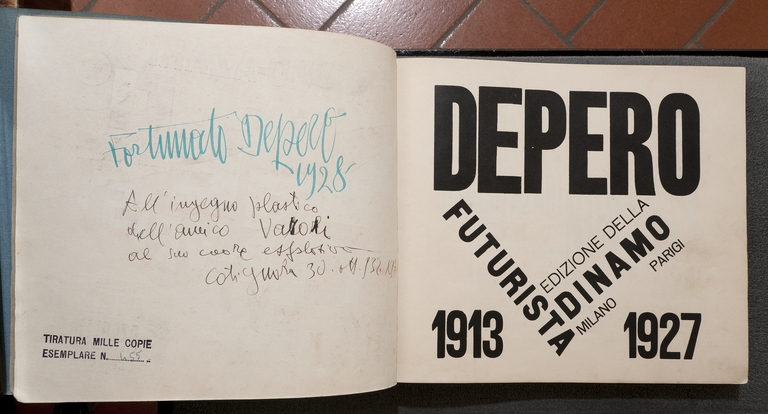 Fortunato Depero
1928
All'ingegno plastico
dell'amico Varoli
al suo cuore esplosivo
Cotignola 30.
TIRATURA MILLE COPIE
ESEMPLARE N. 455
DEPERO
FUTURISTA
EDIZIONE DELLA
DINAMO
MILANO
PARIGI
1913
1927